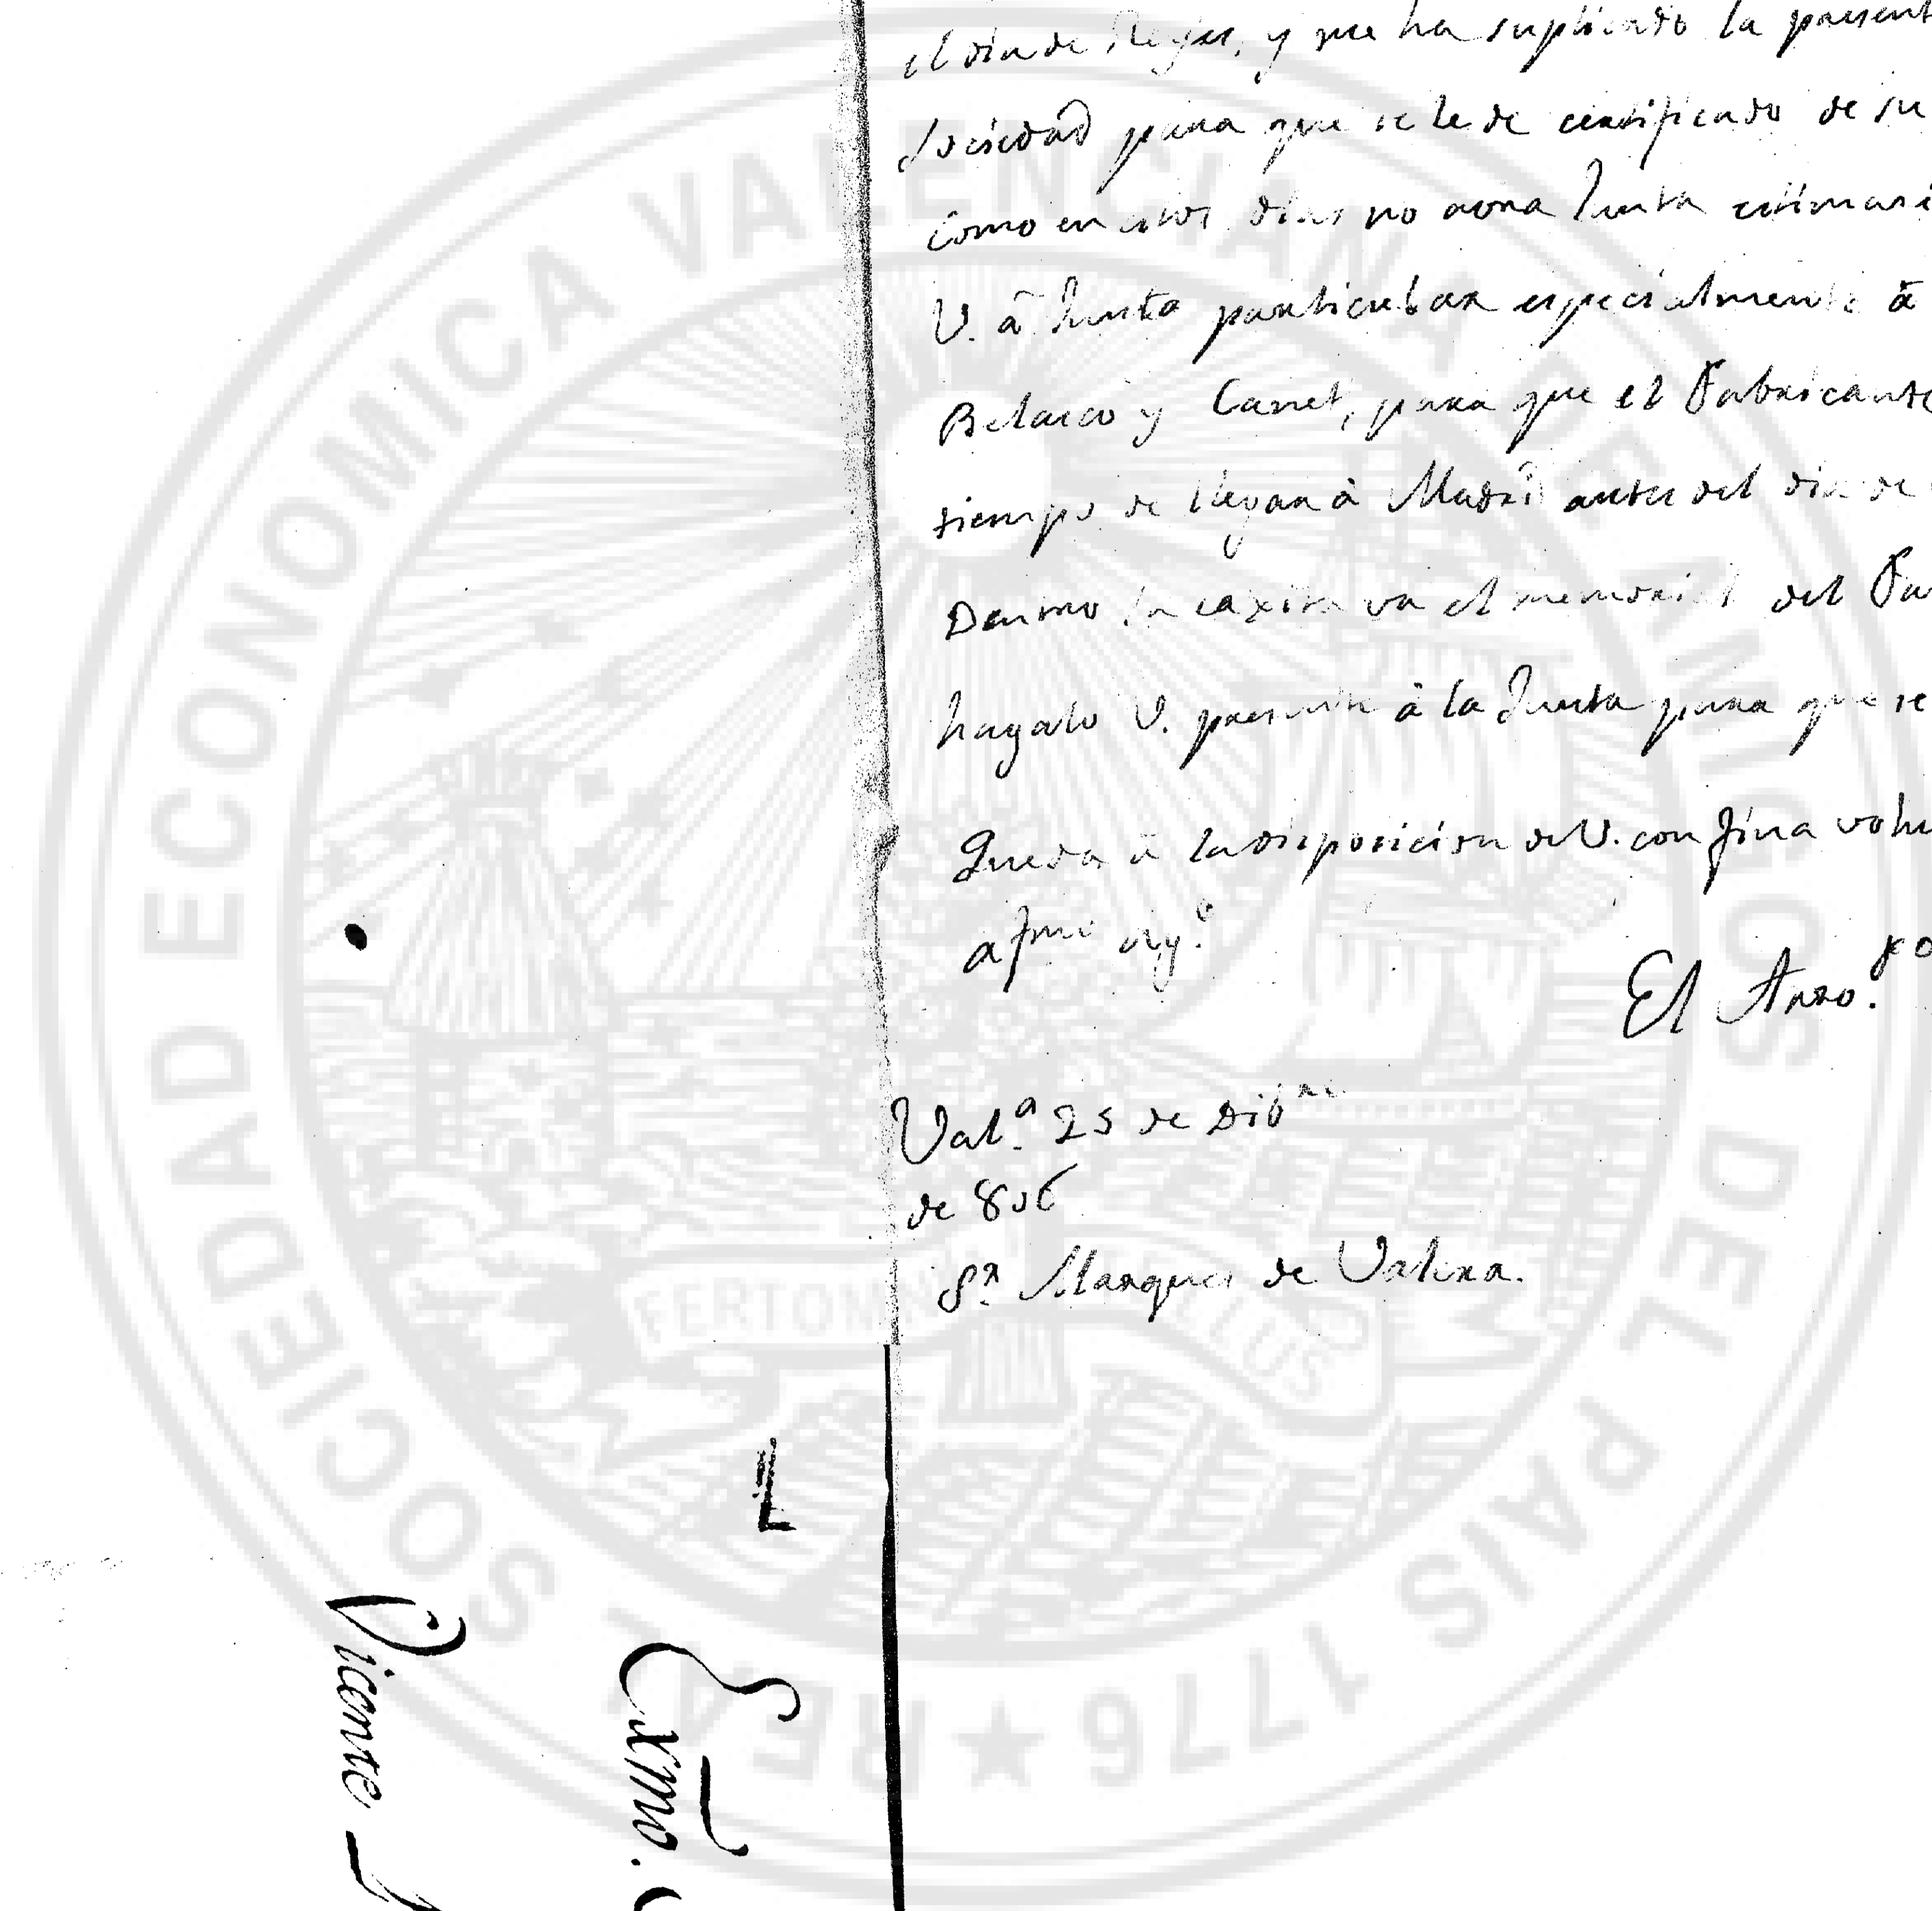 el dia de Reyes, y me ha suplicado la present
Sociedad para que se le de certificado de su
como en estos dias no avra Junta estimari
V. â Junta particular especialmente â
Belarco y Canet, para que el Fabricante
tiempo de llegar à Madrd antes del dia de
Dentro la caxita va el memorial del Fa
hagalo V. presente à la Junta para que se
Queda a la disposicion de V. con fina volu
afmo
El Arzo.po
Val.a 25 de Dibre
de 806
Sr. Marques de Valera.
Exmo.
Vicente
SOCIEDAD ECONOMICA VALENCIANA DE AMIGOS DEL PAIS 1776 ★ REAL